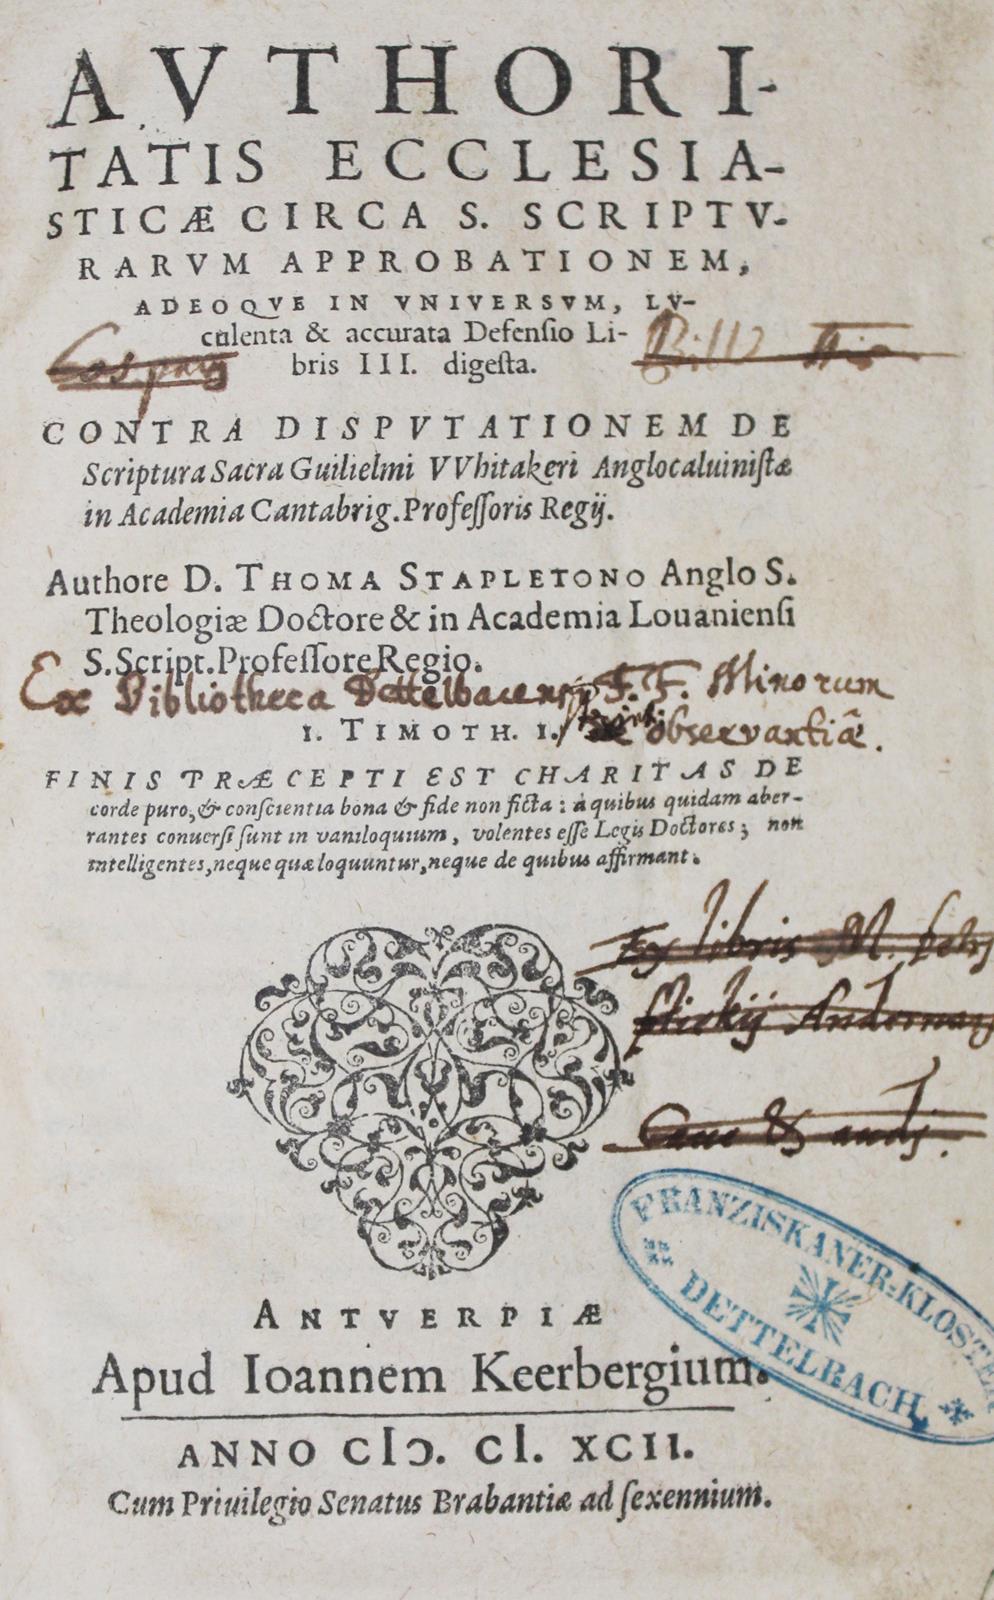 AVTHORI-
TATIS ECCLESIA-
STICÆ CIRCA S. SCRIPTV-
RARVM APPROBATIONEM,
ADEOQVE IN VNIVERSVM, LV-
culenta & accurata Defenſio Li-
bris III. digeſta.
CONTRA DISPVTATIONEM DE
Scriptura Sacra Guilielmi VVhitakeri Anglocaluiniſtæ
in Academia Cantabrig. Profeſſoris Regij.
Authore D. THOMA STAPLETONO Anglo S.
Theologiæ Doctore & in Academia Louanienſi
S. Script. Profeſſore Regio.
Ex Bibliotheca Dettelbacensi F.F. Minorum
observantiâ.
1. TIMOTH. 1.
FINIS PRÆCEPTI EST CHARITAS DE
corde puro, & conſcientia bona & fide non ficta: à quibus quidam aber-
rantes conuerſi ſunt in vaniloquium, volentes eſſe Legis Doctores; non
intelligentes, neque quæ loquuntur, neque de quibus affirmant.
Ex libris M.
FRANZISKANER-KLOSTER
DETTELBACH
ANTVERPIÆ
Apud Ioannem Keerbergium.
ANNO CIↃ. CI. XCII.
Cum Priuilegio Senatus Brabantiæ ad ſexennium.